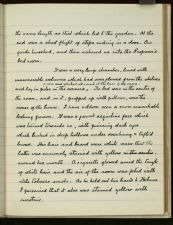 the same length as that which led to the garden. At the
end was a short flight of steps ending in a door. Our
guide knocked, and then ushered us into the Professor's
bed room.
It was a very large chamber, lined with
innumerable volumes which had overflowed from the shelves
and lay in piles in the corners, or were stacked all round at the base of the cases. The bed was in the centre of
the room, and in it, propped up with pillows, was the
owner of the house. I have seldom seen a more remarkable
looking person. It was a gaunt aquiline face which
was turned towards us, with piercing dark eyes
which lurked in deep hollows under overhung & tufted
brows. His hair and beard were white save that the
latter was curiously stained with yellow
around his mouth. A cigarette glowed amid the tangle
of white hair and the air of the room was fetid with
stale tobacco smoke. As he held out his hand to Holmes
I perceived that it also was stained yellow with
nicotine.